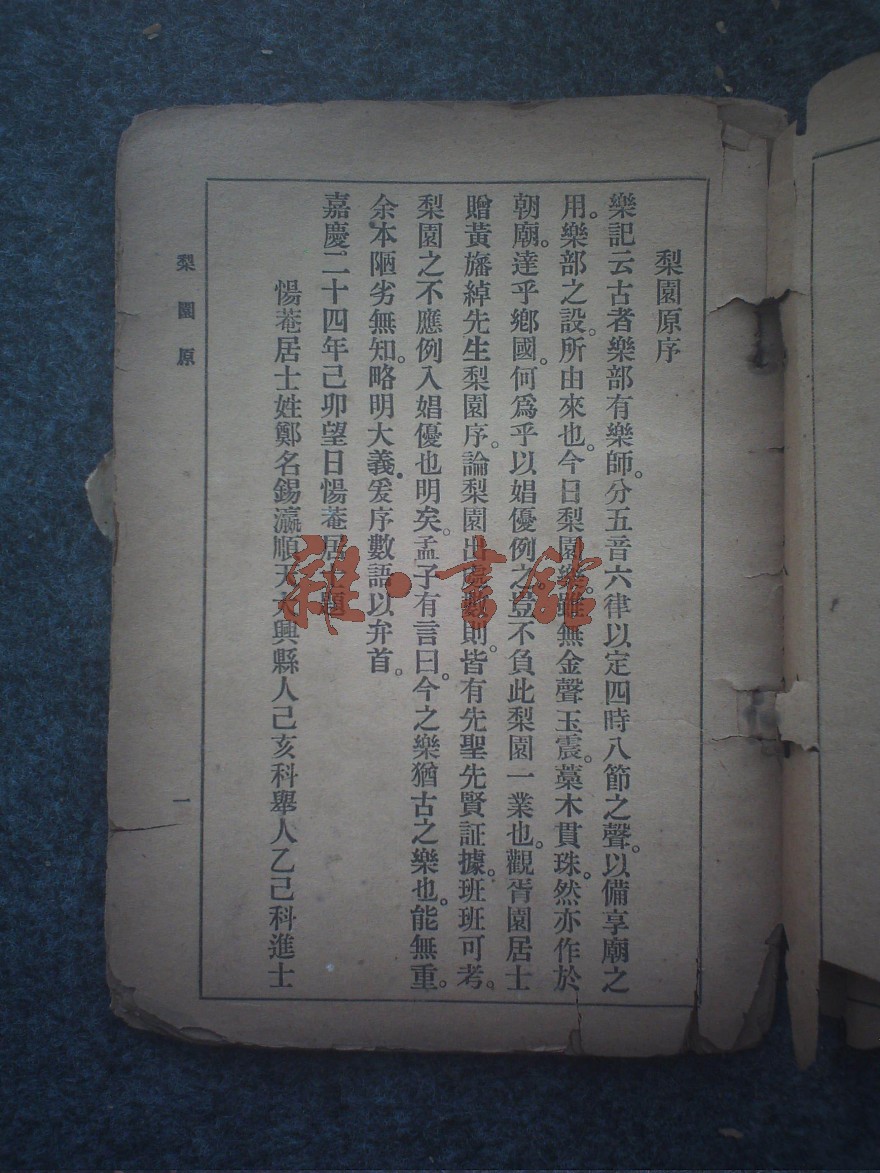 梨園原序
樂記云古者樂部有樂師。分五音六律以定四時八節之聲。以備享廟之
用。樂部之設。所由來也。今日梨園樂。雖無金聲玉震。藁木貫珠。然亦作於
朝廟。達乎鄉國。何爲乎以娼優例之。豈不負此梨園一業也。觀胥園居士
贈黃旛綽先生梨園序。論梨園出處數則。皆有先聖先賢証據。班班可考。
梨園之不應例入娼優也明矣。孟子有言曰。今之樂猶古之樂也。能無重。
余本陋劣無知。略明大義。爰序數語以弁首。
嘉慶二十四年己卯望日惕菴居士題
惕菴居士姓鄭名錫瀛順天大興縣人己亥科舉人乙己科進士
梨園原
一
雜·書館